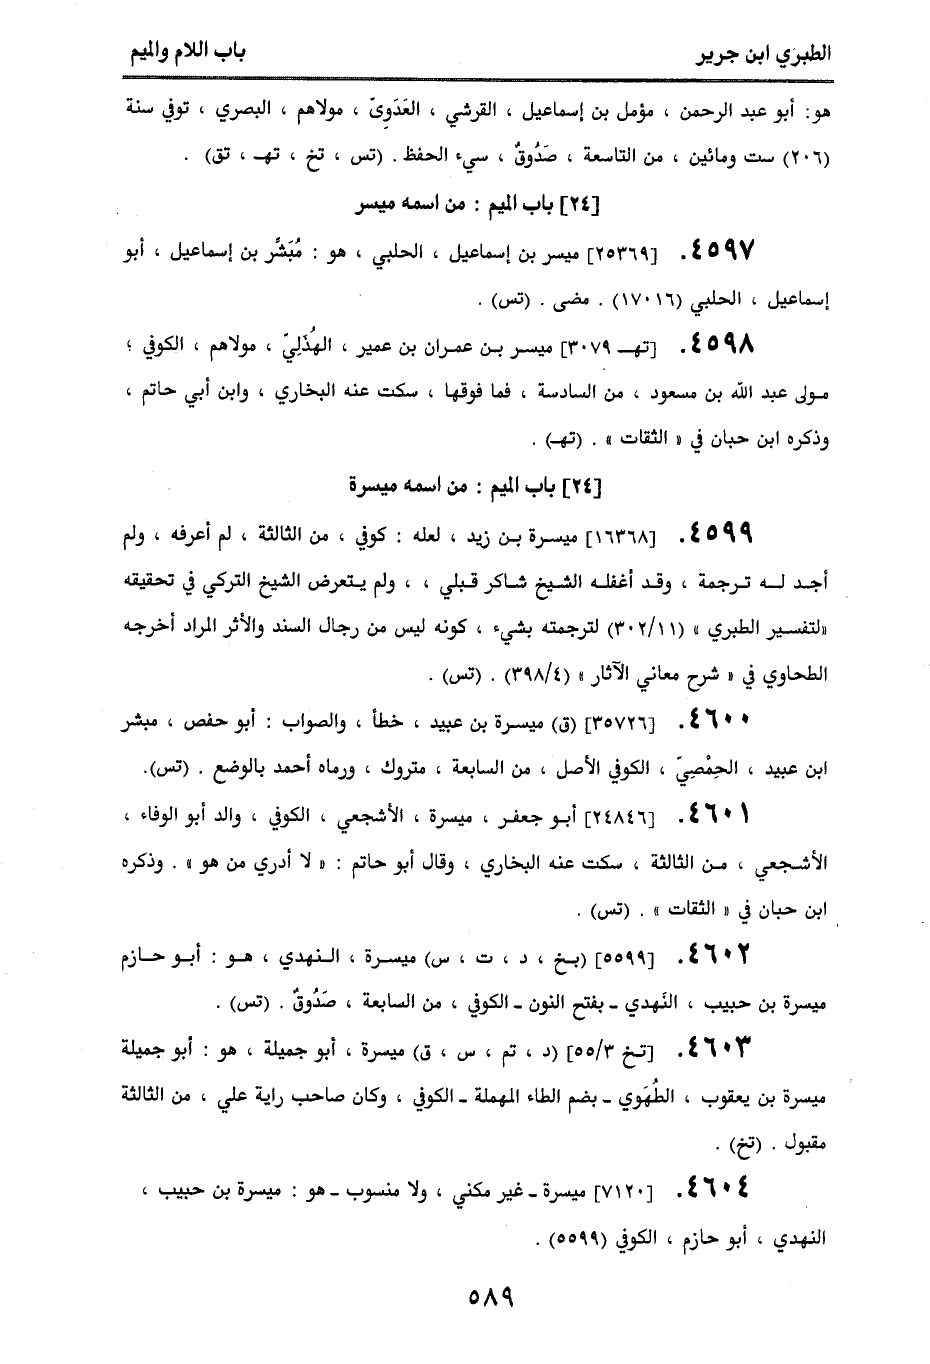 الطبري ابن جرير
باب اللام والميم
هو: أبو عبد الرحمن ، مؤمل بن إسماعيل ، القرشي ، العَدَوِيّ ، مولاهم ، البصري ، توفي سنة
(٢٠٦) ست ومائين ، من التاسعة ، صَدُوقٌ ، سيء الحفظ . (تس ، تخ ، تهـ ، تق) .
[٢٤] باب الميم : من اسمه ميسر
٤٥٩٧. [٢٥٣٦٩] ميسر بن إسماعيل ، الحلبي ، هو : مُبَشَّر بن إسماعيل ، أبو
إسماعيل ، الحلبي (١٧٠١٦) . مضى . (تس) .
٤٥٩٨. [تهـ ٣٠٧٩] ميسر بن عمران بن عمير ، الهُذَلِيّ ، مولاهم ، الكوفي ؛
مولى عبد الله بن مسعود ، من السادسة ، فما فوقها ، سكت عنه البخاري ، وابن أبي حاتم ،
وذكره ابن حبان في « الثقات » . (تهـ) .
[٢٤] باب الميم : من اسمه ميسرة
٤٥٩٩. [١٦٣٦٨] ميسرة بن زيد ، لعله : كوفي ، من الثالثة ، لم أعرفه ، ولم
أجد له ترجمة ، وقد أغفله الشيخ شاكر قبلي ، ، ولم يتعرض الشيخ التركي في تحقيقه
«لتفسير الطبري » (٣٠٢/١١) لترجمته بشيء ، كونه ليس من رجال السند والأثر المراد أخرجه
الطحاوي في « شرح معاني الآثار » (٣٩٨/٤) . (تس) .
٤٦٠٠. [٣٥٧٢٦] (ق) ميسرة بن عبيد ، خطأ ، والصواب : أبو حفص ، مبشر
ابن عبيد ، الحِمْصِيّ ، الكوفي الأصل ، من السابعة ، متروك ، ورماه أحمد بالوضع . (تس).
٤٦٠١. [٢٤٨٤٦] أبو جعفر ، ميسرة ، الأشجعي ، الكوفي ، والد أبو الوفاء ،
الأشجعي ، من الثالثة ، سكت عنه البخاري ، وقال أبو حاتم : « لا أدري من هو » . وذكره
ابن حبان في « الثقات » . (تس) .
٤٦٠٢. [٥٥٩٩] (بخ ، د ، ت ، س) ميسرة ، النهدي ، هو : أبو حازم
ميسرة بن حبيب ، النَهدي ـ بفتح النون ـ الكوفي ، من السابعة ، صَدُوقٌ . (تس) .
٤٦٠٣. [تخ ٥٥/٣] (د ، تم ، س ، ق) ميسرة ، أبو جميلة ، هو : أبو جميلة
ميسرة بن يعقوب ، الطُهَوي ـ بضم الطاء المهملة ـ الكوفي ، وكان صاحب راية علي ، من الثالثة
مقبول . (تخ) .
٤٦٠٤. [٧١٢٠] ميسرة ـ غير مكني ، ولا منسوب ـ هو : ميسرة بن حبيب ،
النهدي ، أبو حازم ، الكوفي (٥٥٩٩) .
٥٨٩